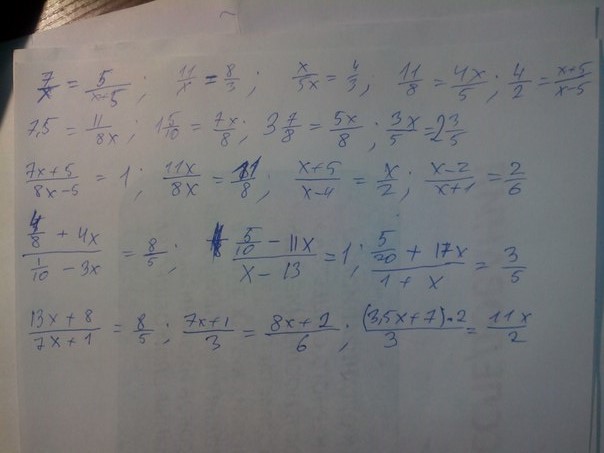 7/x = 5/(x+5); 11/x = 8/3; x/5x = 4/3; 11/8 = 4x/5; 4/2 = (x+5)/(x-5)
7,5 = 11/8x; 1 5/10 = 7x/8; 3 7/8 = 5x/8; 3x/5 = 2 3/5
(7x+5)/(8x-5) = 1; 11x/8x = 11/8; (x+5)/(x-4) = x/2; (x-2)/(x+1) = 2/6
(4/8 + 4x)/(1/10 - 3x) = 8/5; (5/10 - 11x)/(x - 13) = 1; (5/20 + 17x)/(1 + x) = 3/5
(13x + 8)/(7x + 1) = 8/5; (7x+1)/3 = (8x+2)/6; (3,5x+7)·2/3 = 11x/2